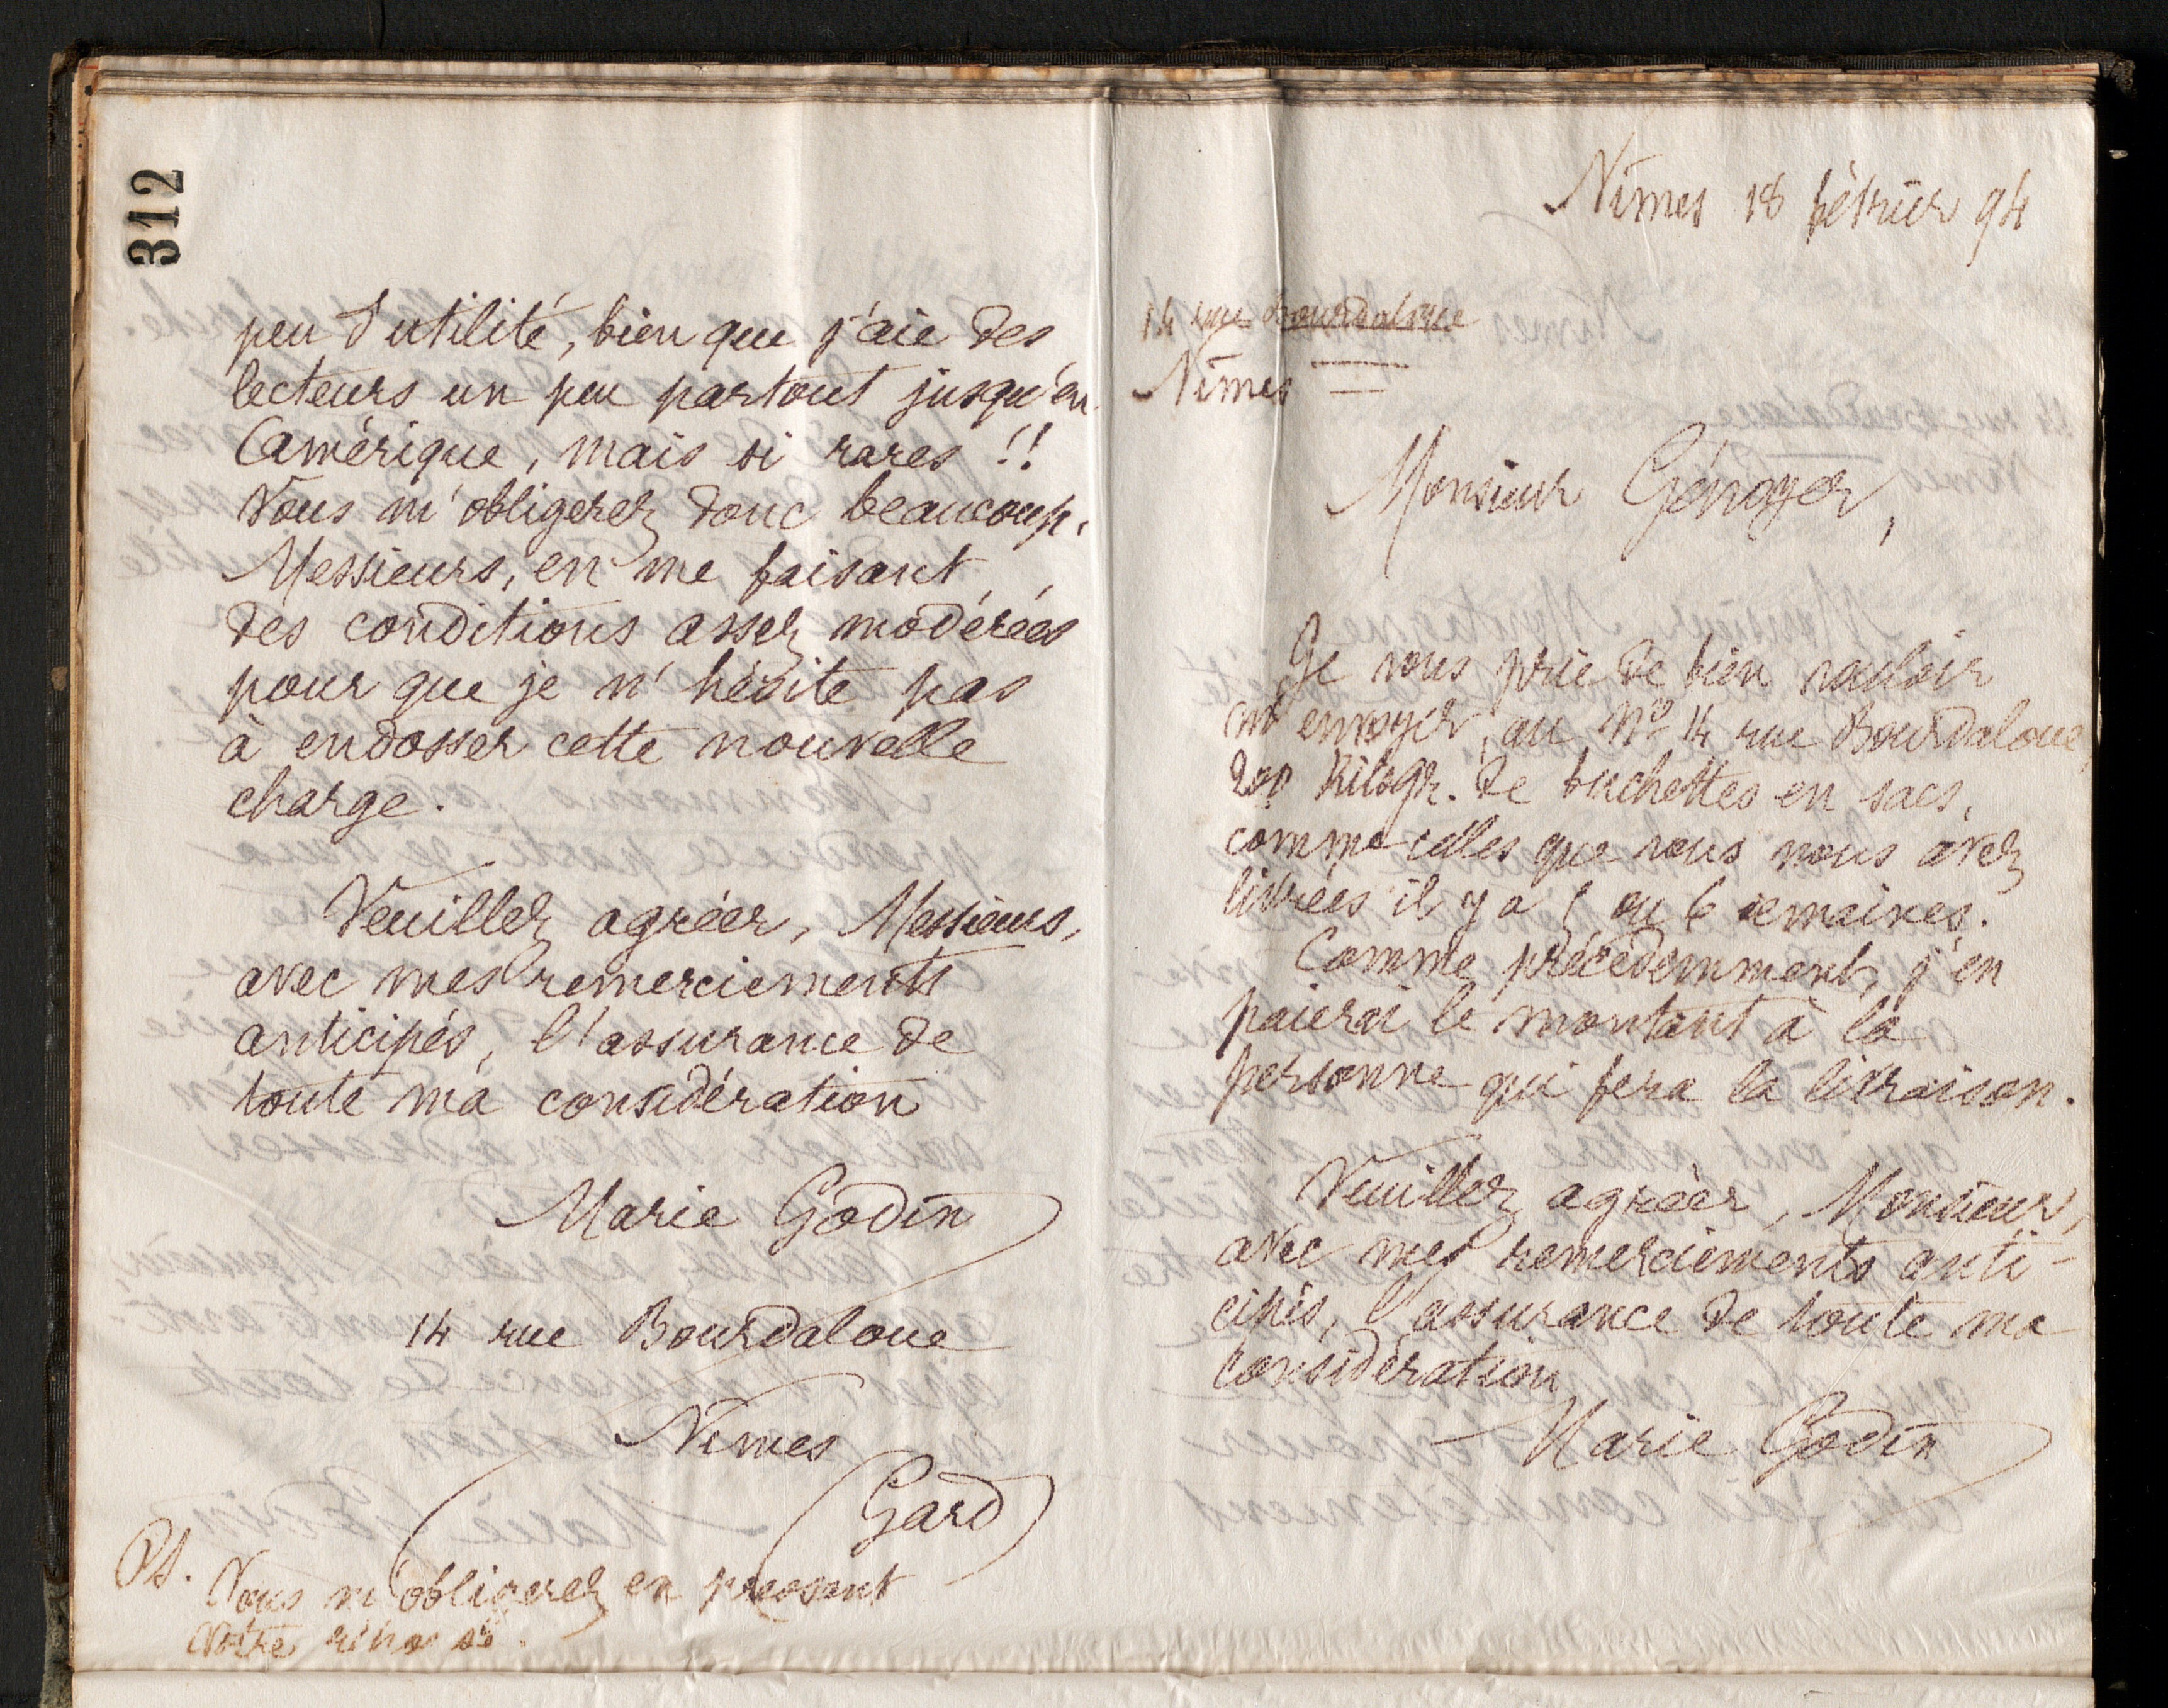 312
peu d'utilité, bien que j'aie des
lecteurs un peu partout jusqu'en
Amérique, mais si rares !!
Vous m'obligerez donc beaucoup,
Messieurs, en me faisant
des conditions assez modérées
pour que je n'hésite pas
à endosser cette nouvelle
charge.
Veuillez agréer, Messieurs,
avec mes remerciements
anticipés, l'assurance de
toute ma considération
Marie Godin
14 rue Bourdaloue
Nîmes
(Gard)
Ps. Vous m'obligerez en pressant
votre réponse.
Nîmes 18 février 94
14 rue Bourdaloue
Nîmes
Monsieur Génoyer,
Je vous prie de bien vouloir
m'envoyer, au No 14 rue Bourdaloue,
200 Kilogr. de buchettes en sacs,
comme celles que vous nous avez
livrées il y a 5 ou 6 semaines.
Comme précédemment, j'en
paierai le montant à la
personne qui fera la livraison.
Veuillez agréer, Monsieur,
avec mes remerciements anti-
cipés, l'assurance de toute ma
considération
Marie Godin